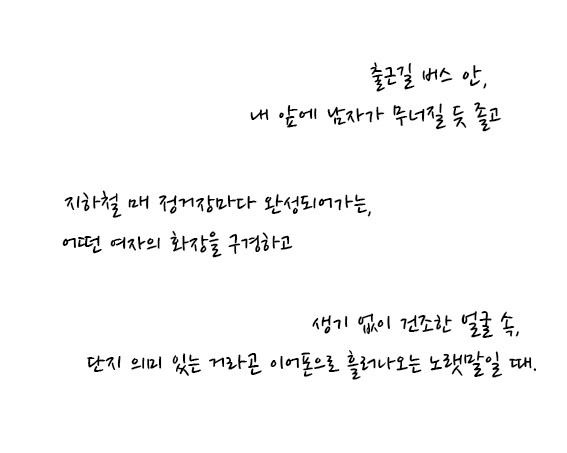 출근길 버스 안,
내 앞에 남자가 무너질 듯 졸고
지하철 매 정거장마다 완성되어가는,
어떤 여자의 화장을 구경하고
생기 없이 건조한 얼굴 속,
단지 의미 있는 거라곤 이어폰으로 흘러나오는 노랫말일 때.